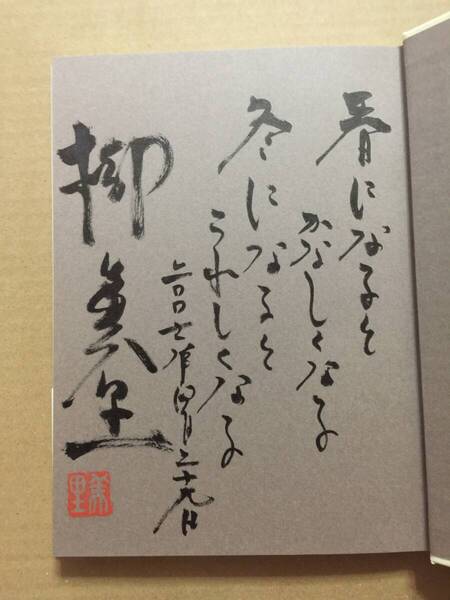 春になると
かなしくなる
冬になると
うれしくなる
二〇〇七年四月二十九日
柳美里
美里